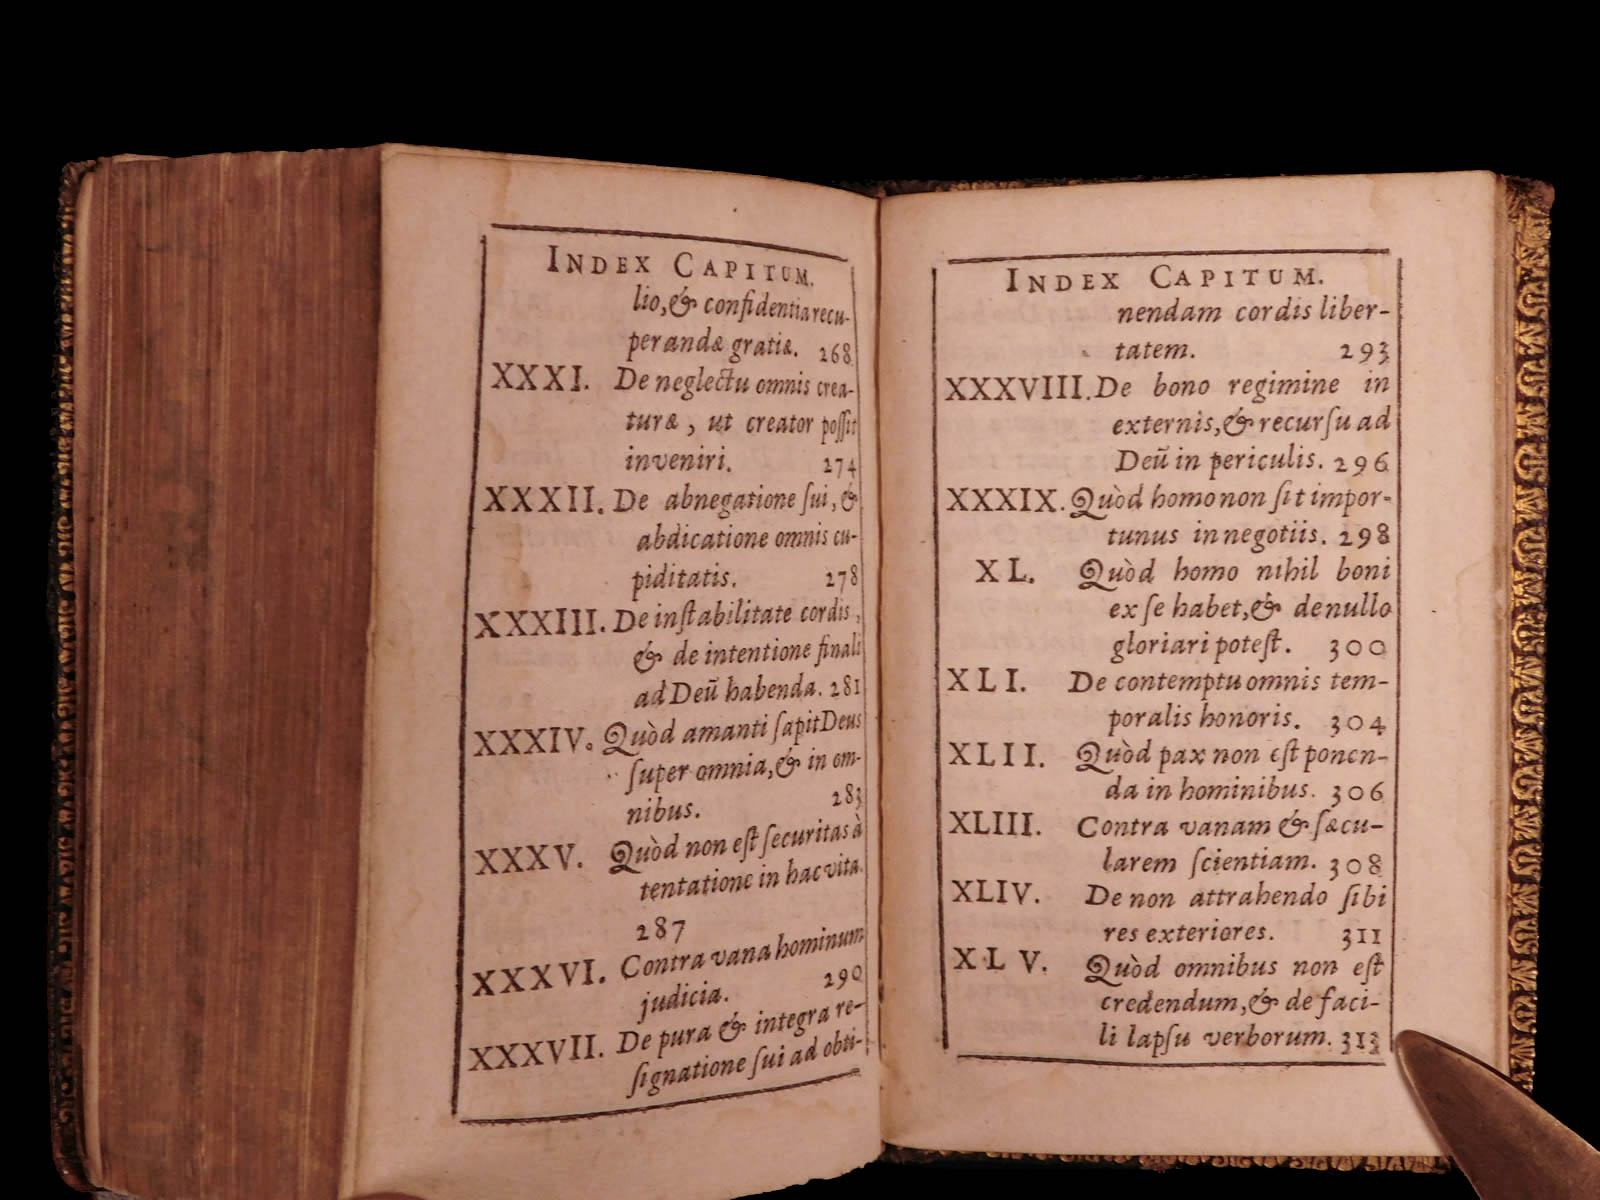 INDEX CAPITUM.
lio, & confidentia recu-
perandæ gratiæ. 268
XXXI. De neglectu omnis crea-
turæ, ut creator poſſit
inveniri. 274
XXXII. De abnegatione ſui, &
abdicatione omnis cu-
piditatis. 278
XXXIII. De inſtabilitate cordis,
& de intentione finali
ad Deũ habenda. 281
XXXIV. Quòd amanti ſapit Deus
ſuper omnia, & in om-
nibus. 283
XXXV. Quòd non eſt ſecuritas à
tentatione in hac vita.
287
XXXVI. Contra vana hominum
judicia. 290
XXXVII. De pura & integra re-
ſignatione ſui ad obti-
INDEX CAPITUM.
nendam cordis liber-
tatem. 293
XXXVIII. De bono regimine in
externis, & recurſu ad
Deũ in periculis. 296
XXXIX. Quòd homo non ſit impor-
tunus in negotiis. 298
XL. Quòd homo nihil boni
ex ſe habet, & de nullo
gloriari poteſt. 300
XLI. De contemptu omnis tem-
poralis honoris. 304
XLII. Quòd pax non eſt ponen-
da in hominibus. 306
XLIII. Contra vanam & ſæcu-
larem ſcientiam. 308
XLIV. De non attrahendo ſibi
res exteriores. 311
XLV. Quòd omnibus non eſt
credendum, & de faci-
li lapſu verborum. 313